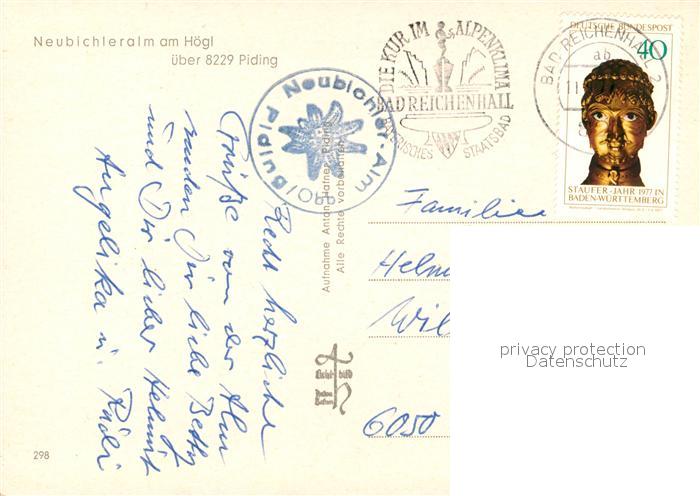 Neubichleralm am Högl
über 8229 Piding
Neubichler-Alm
Högl
Piding
DIE KUR IM ALPENKLIMA
BAD REICHENHALL
BAYERISCHES STAATSBAD
BAD REICHENHALL 2
ab
DEUTSCHE BUNDESPOST
40
STAUFER-JAHR 1977 IN
BADEN-WÜRTTEMBERG
Aufnahme Anton Hafner, Piding
Alle Rechte vorbehalten
Recht herzliche
Grüße von der Alm
senden Dir liebe Betty
und Dir lieber Helmut
Angelika u.
Familie
Helm
Wil
6050
privacy protection
Datenschutz
298